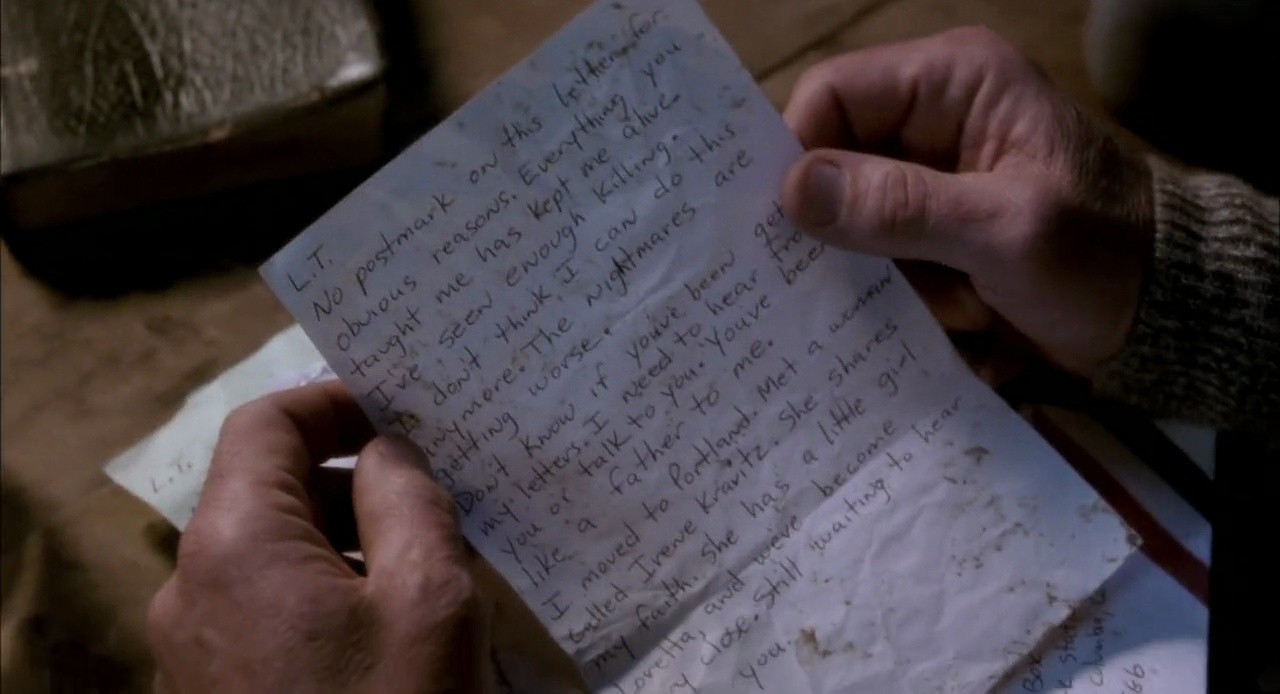 L.T.
No postmark on this letter for
obvious reasons. Everything you
taught me has kept me alive.
I've seen enough killing.
I don't think I can do this
anymore. The nightmares are
getting worse.
Don't know if you've been get
my letters. I need to hear fro
you or talk to you. You've been
like a father to me.
I moved to Portland. Met a woman
called Irene Kravitz. She shares
my faith. She has a little girl
Loretta, and weve become
y close. Still waiting to hear
you.
L.T.